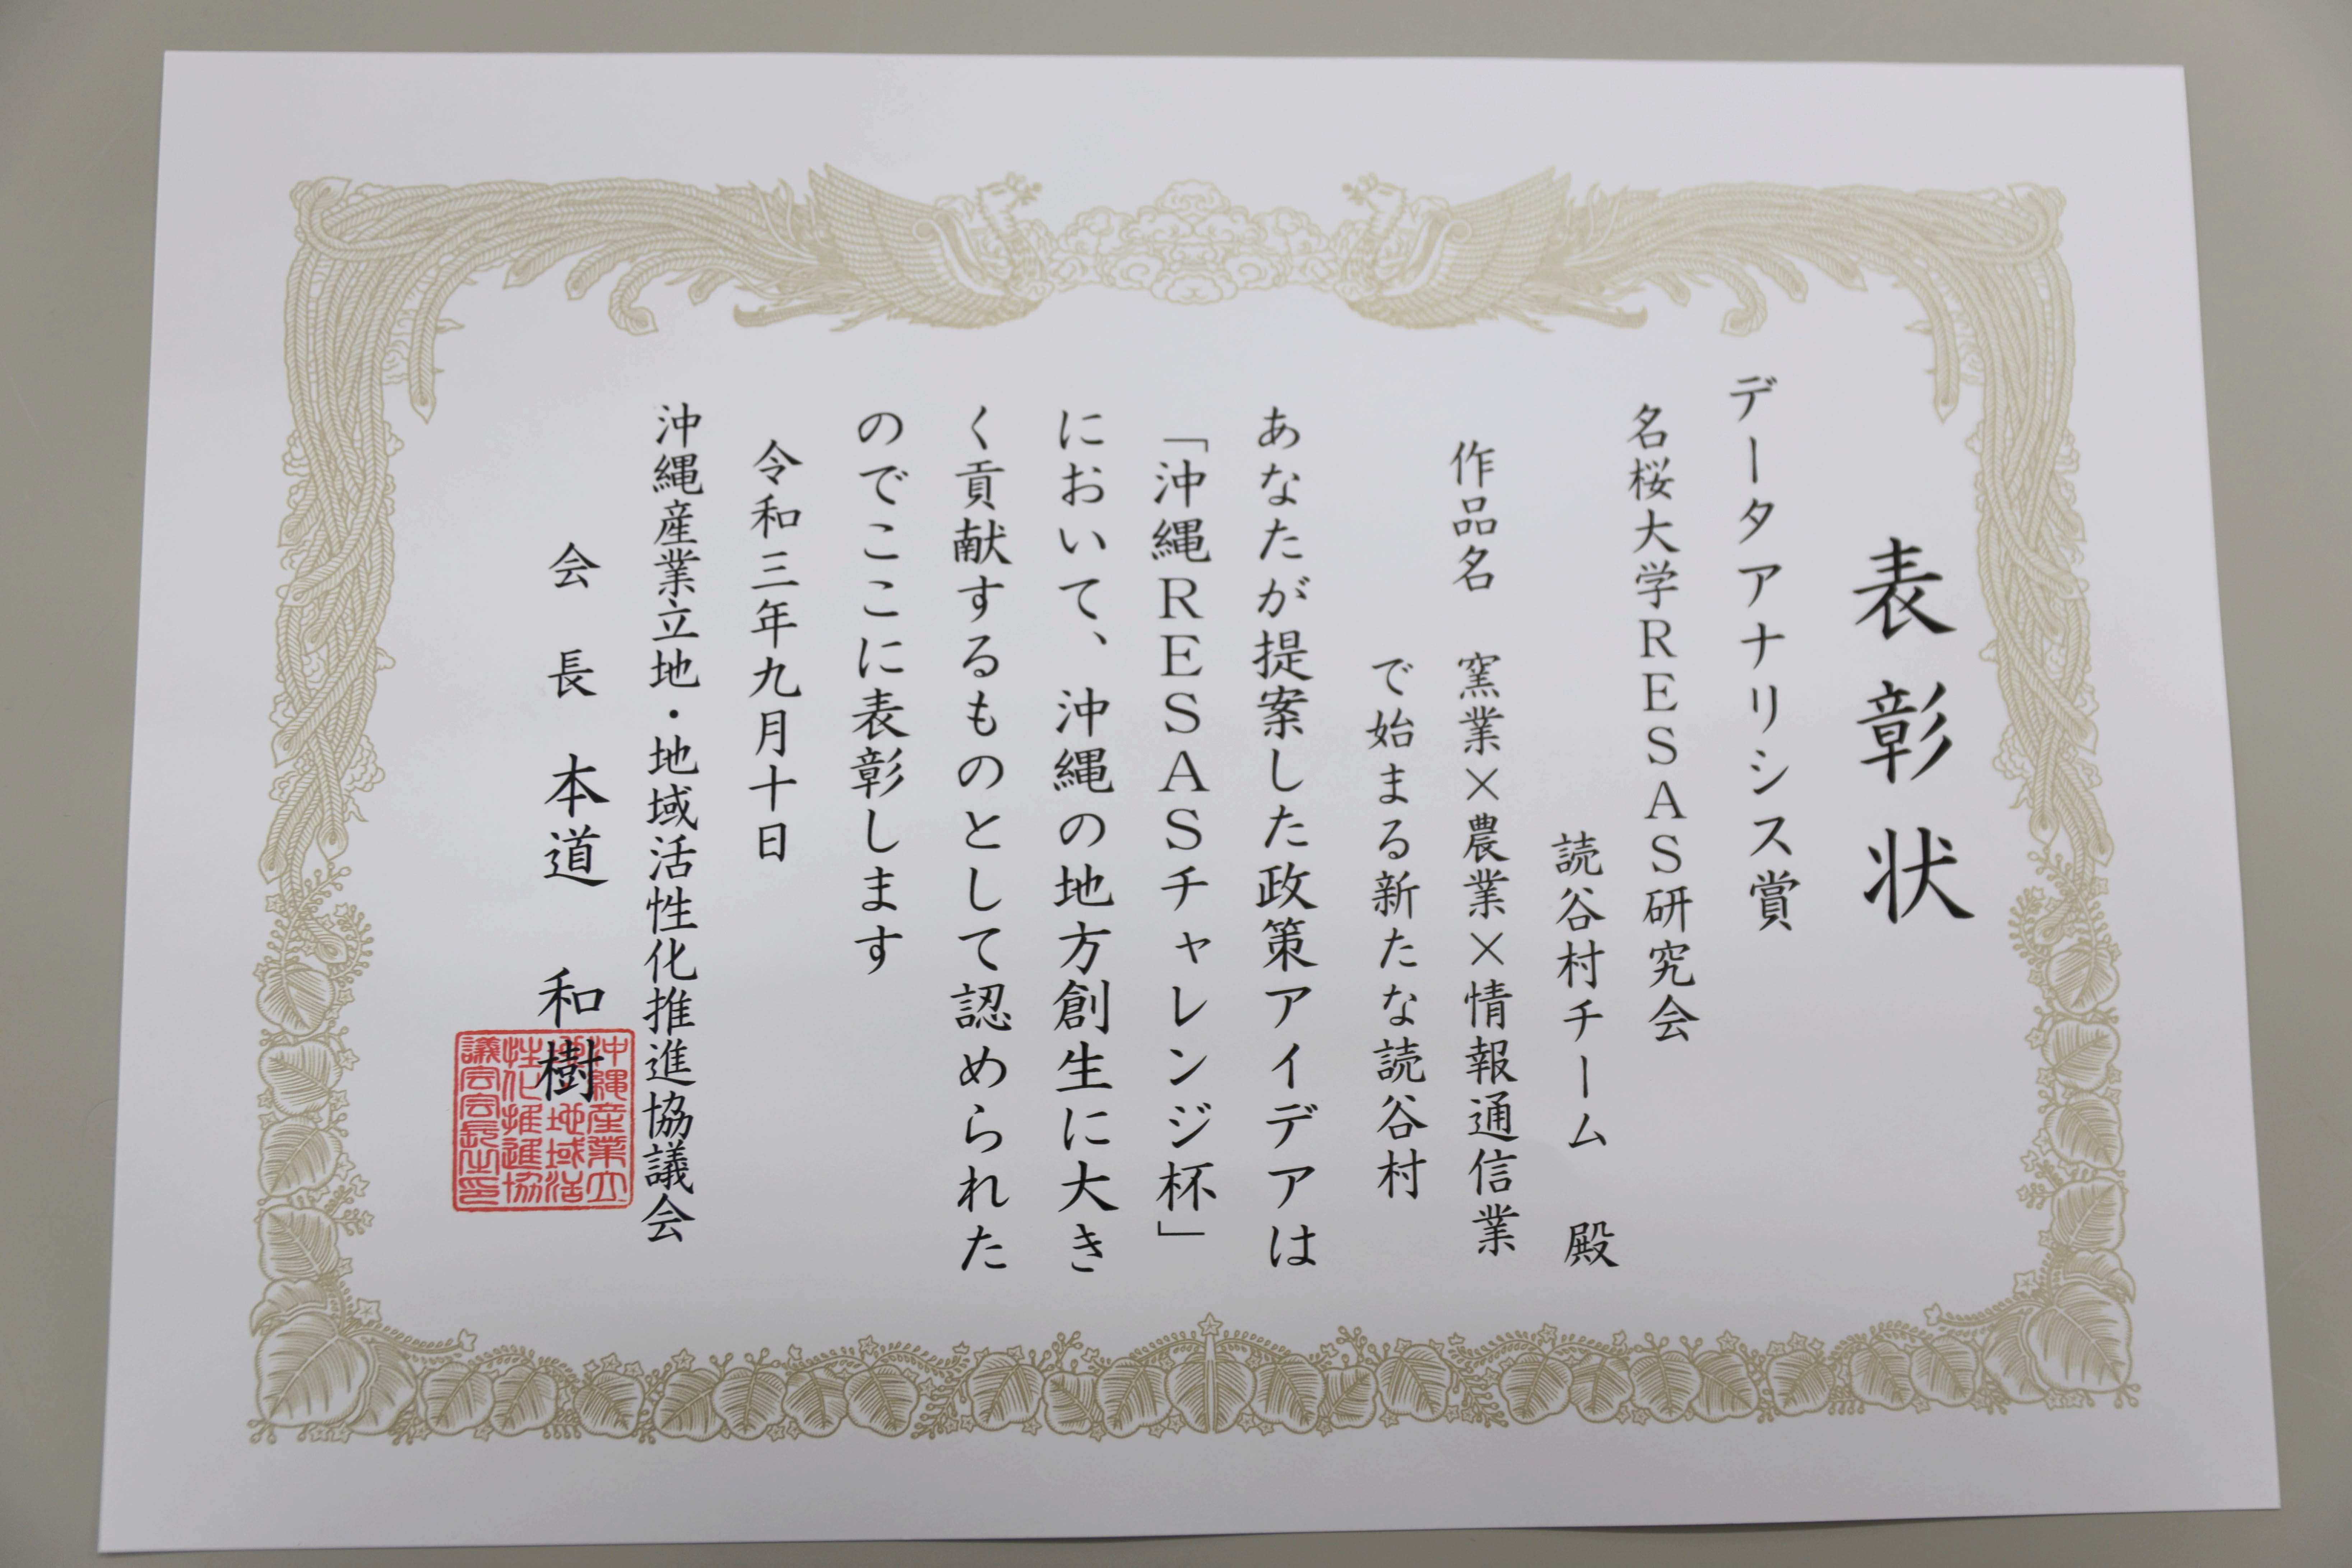 表彰状
データアナリシス賞
名桜大学RESAS研究会
読谷村チーム 殿
作品名 窯業×農業×情報通信業
で始まる新たな読谷村
あなたが提案した政策アイデアは
「沖縄RESASチャレンジ杯」
において、沖縄の地方創生に大き
く貢献するものとして認められた
のでここに表彰します
令和三年九月十日
沖縄産業立地・地域活性化推進協議会
会長 本道 和樹
沖縄産業立
地・地域活
性化推進協
議会会長之印